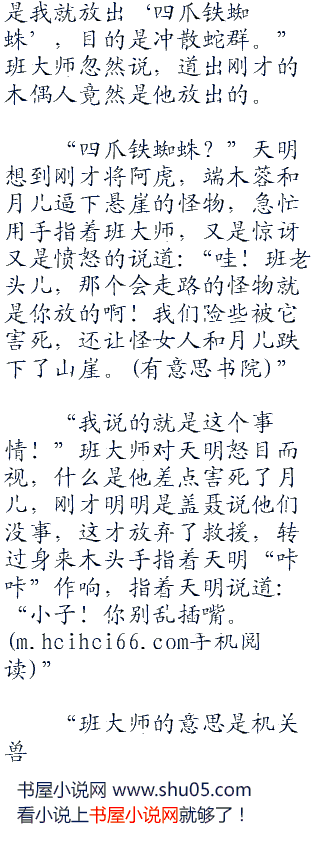 是我就放出‘四爪铁蜘
蛛’，目的是冲散蛇群。”
班大师忽然说，道出刚才的
木偶人竟然是他放出的。
“四爪铁蜘蛛？”天明
想到刚才将阿虎，端木蓉和
月儿逼下悬崖的怪物，急忙
用手指着班大师，又是惊讶
又是愤怒的说道：“哇！班老
头儿，那个会走路的怪物就
是你放的啊！我们险些被它
害死，还让怪女人和月儿跌
下了山崖。(有意思书院)”
“我说的就是这个事
情！”班大师对天明怒目而
视，什么是他差点害死了月
儿，刚才明明是盖聂说他们
没事，这才放弃了救援，转
过身来木头手指着天明“咔
咔”作响，指着天明说道：
“小子！你别乱插嘴。
(m.hcihci66.com手机阅
读)”
“班大师的意思是机关
兽
书屋小说网 www.shu05.com
看小说上书屋小说网就够了！